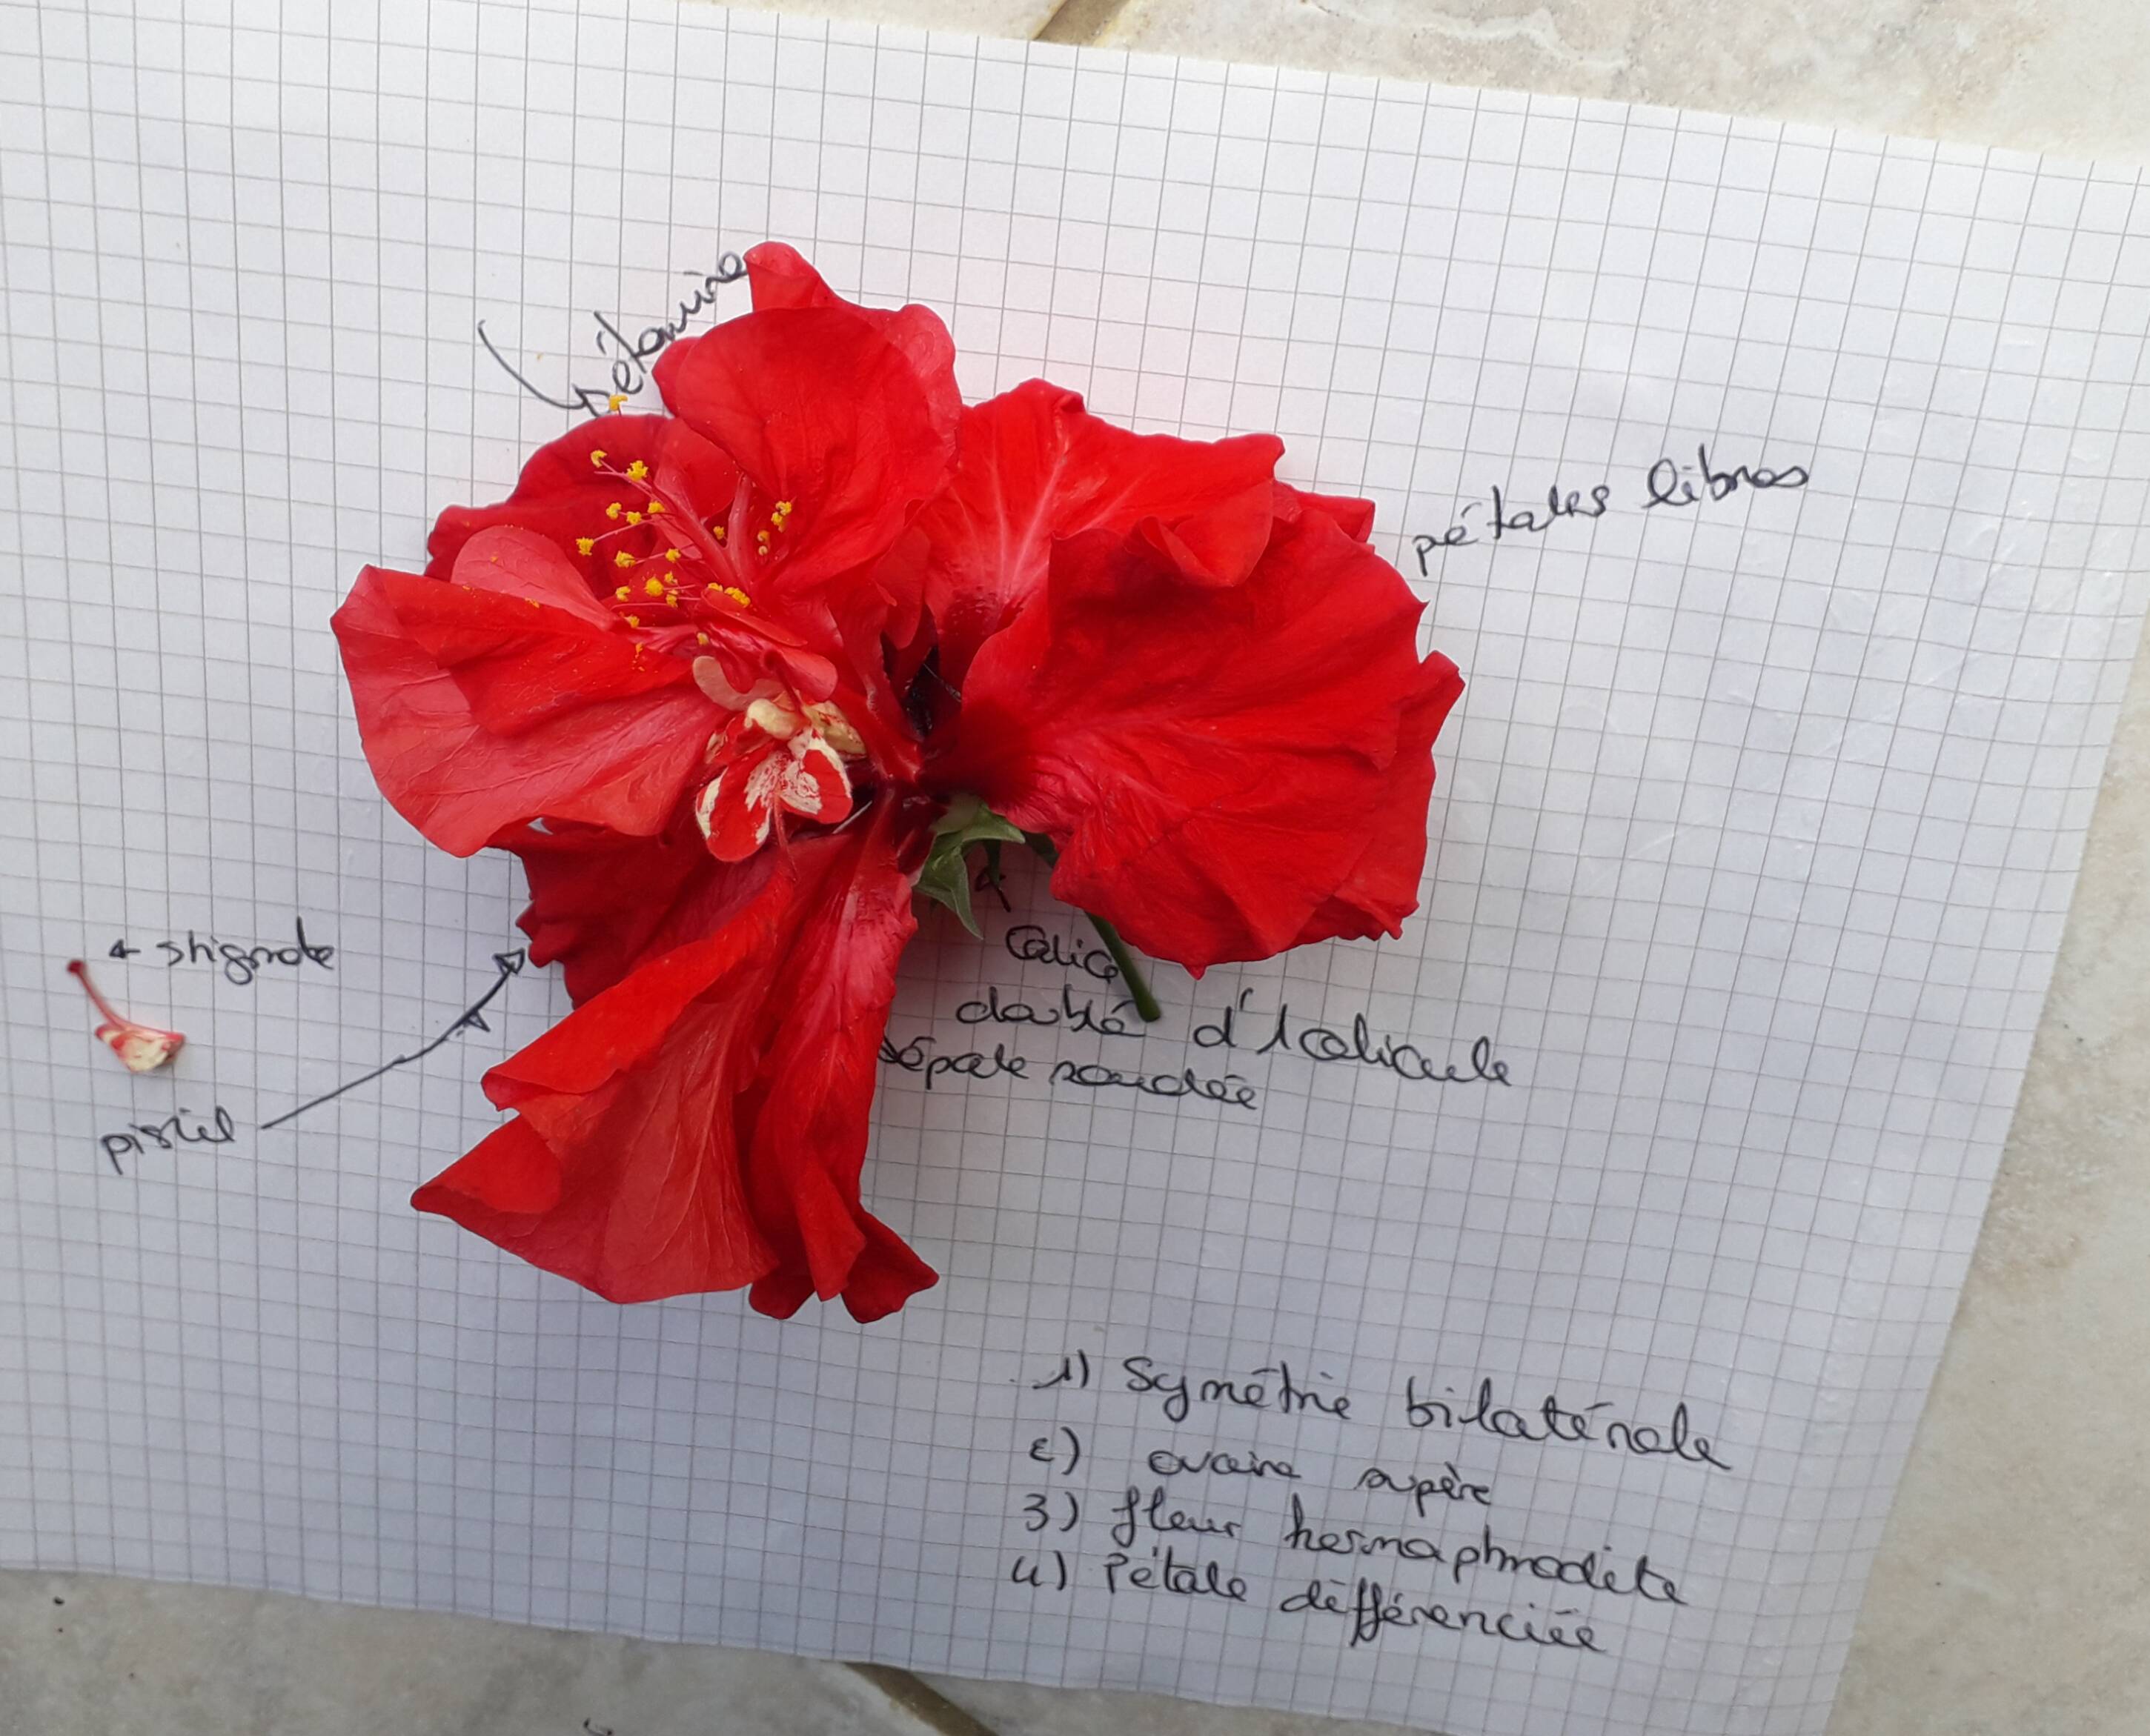 étamine
pétales libres
← stigmate
Calice
doublé d'1 calicule
sépale soudée
pistil
1) Symétrie bilatérale
2) ovaire supère
3) fleur hermaphrodite
4) Pétale différenciée